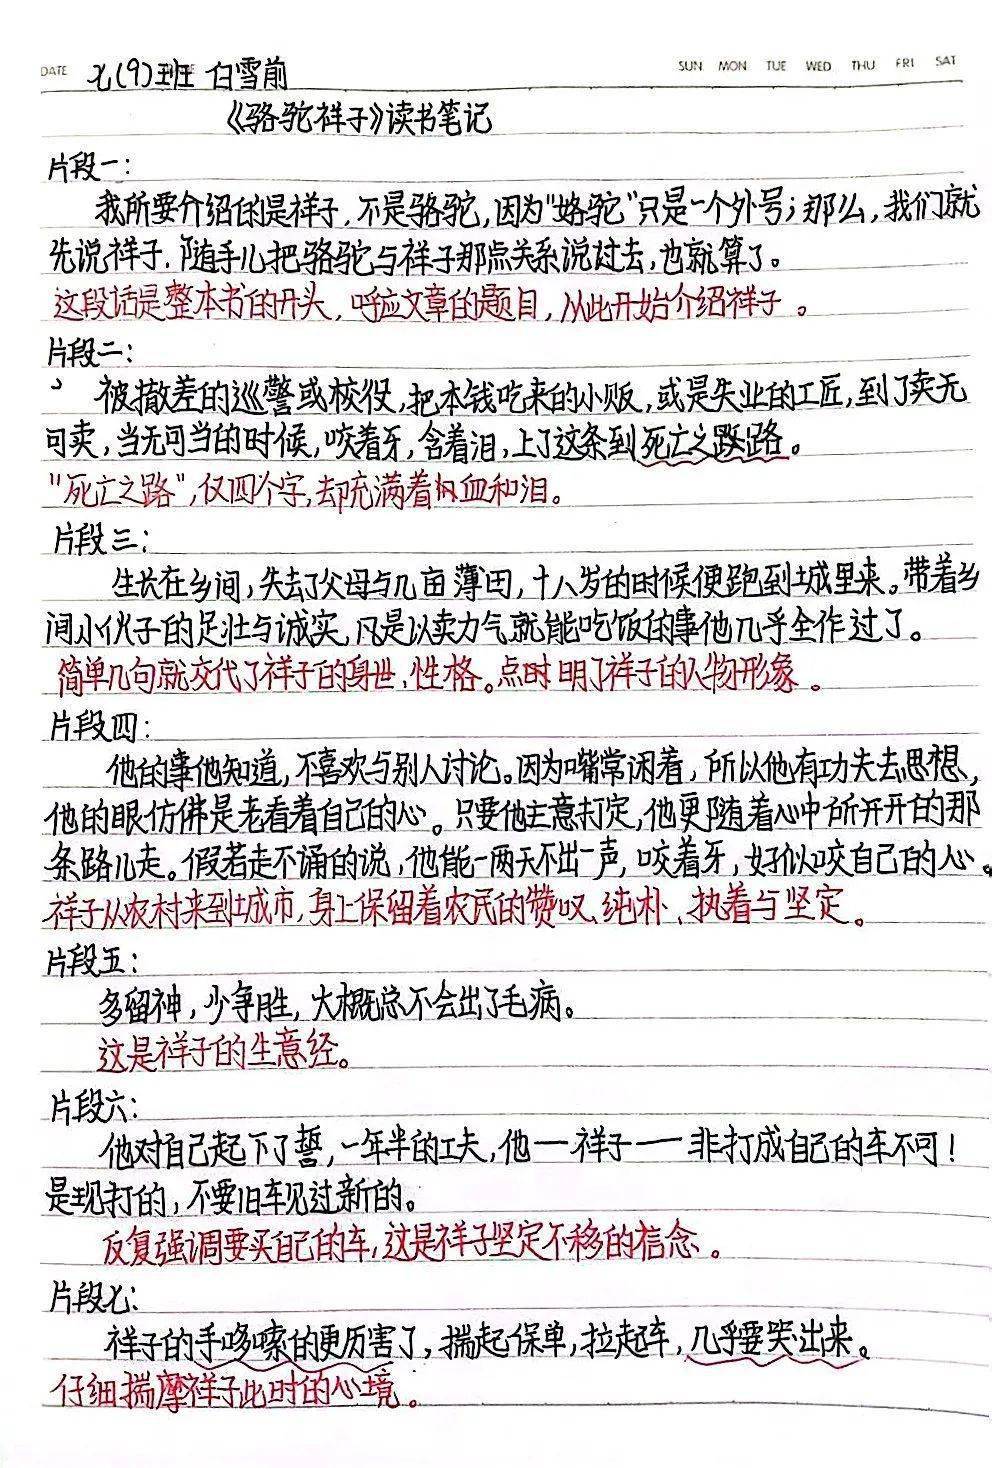 DATE 七(9)班 白雪前 SUN MON TUE WED THU FRI SAT
《骆驼祥子》读书笔记
片段一：
我所要介绍的是祥子，不是骆驼，因为“骆驼”只是一个外号；那么，我们就
先说祥子，随手儿把骆驼与祥子那点关系说过去，也就算了。
这段话是整本书的开头，呼应文章的题目，从此开始介绍祥子。
片段二：
被撤差的巡警或校役，把本钱吃来的小贩，或是失业的工匠，到了卖无
可卖，当无可当的时候，咬着牙，含着泪，上了这条到死亡之路。
“死亡之路”，仅四个字，却充满着血和泪。
片段三：
生长在乡间，失去了父母与几亩薄田，十八岁的时候便跑到城里来。带着乡
间小伙子的足壮与诚实，凡是以卖力气就能吃饭的事他几乎全作过了。
简单几句就交代了祥子的身世、性格。点明了祥子的人物形象。
片段四：
他的事他知道，不喜欢与别人讨论。因为嘴常闲着，所以他有功夫去思想，
他的眼仿佛是老看着自己的心。只要他主意打定，他更随着心中所开开的那
条路儿走。假若走不诵的说，他能一两天不出一声，咬着牙，好似咬自己的心。
祥子从农村来到城市，身上保留着农民的赞叹、纯朴、执着与坚定。
片段五：
多留神，少争胜，大概总不会出了毛病。
这是祥子的生意经。
片段六：
他对自己起下了誓，一年半的工夫，他——祥子——非打成自己的车不可！
是现打的，不要旧车见过新的。
反复强调要买自己的车，这是祥子坚定不移的信念。
片段七：
祥子的手哆嗦的更厉害了，揣起保单，拉起车，几乎要哭出来。
仔细揣摩祥子此时的心境。